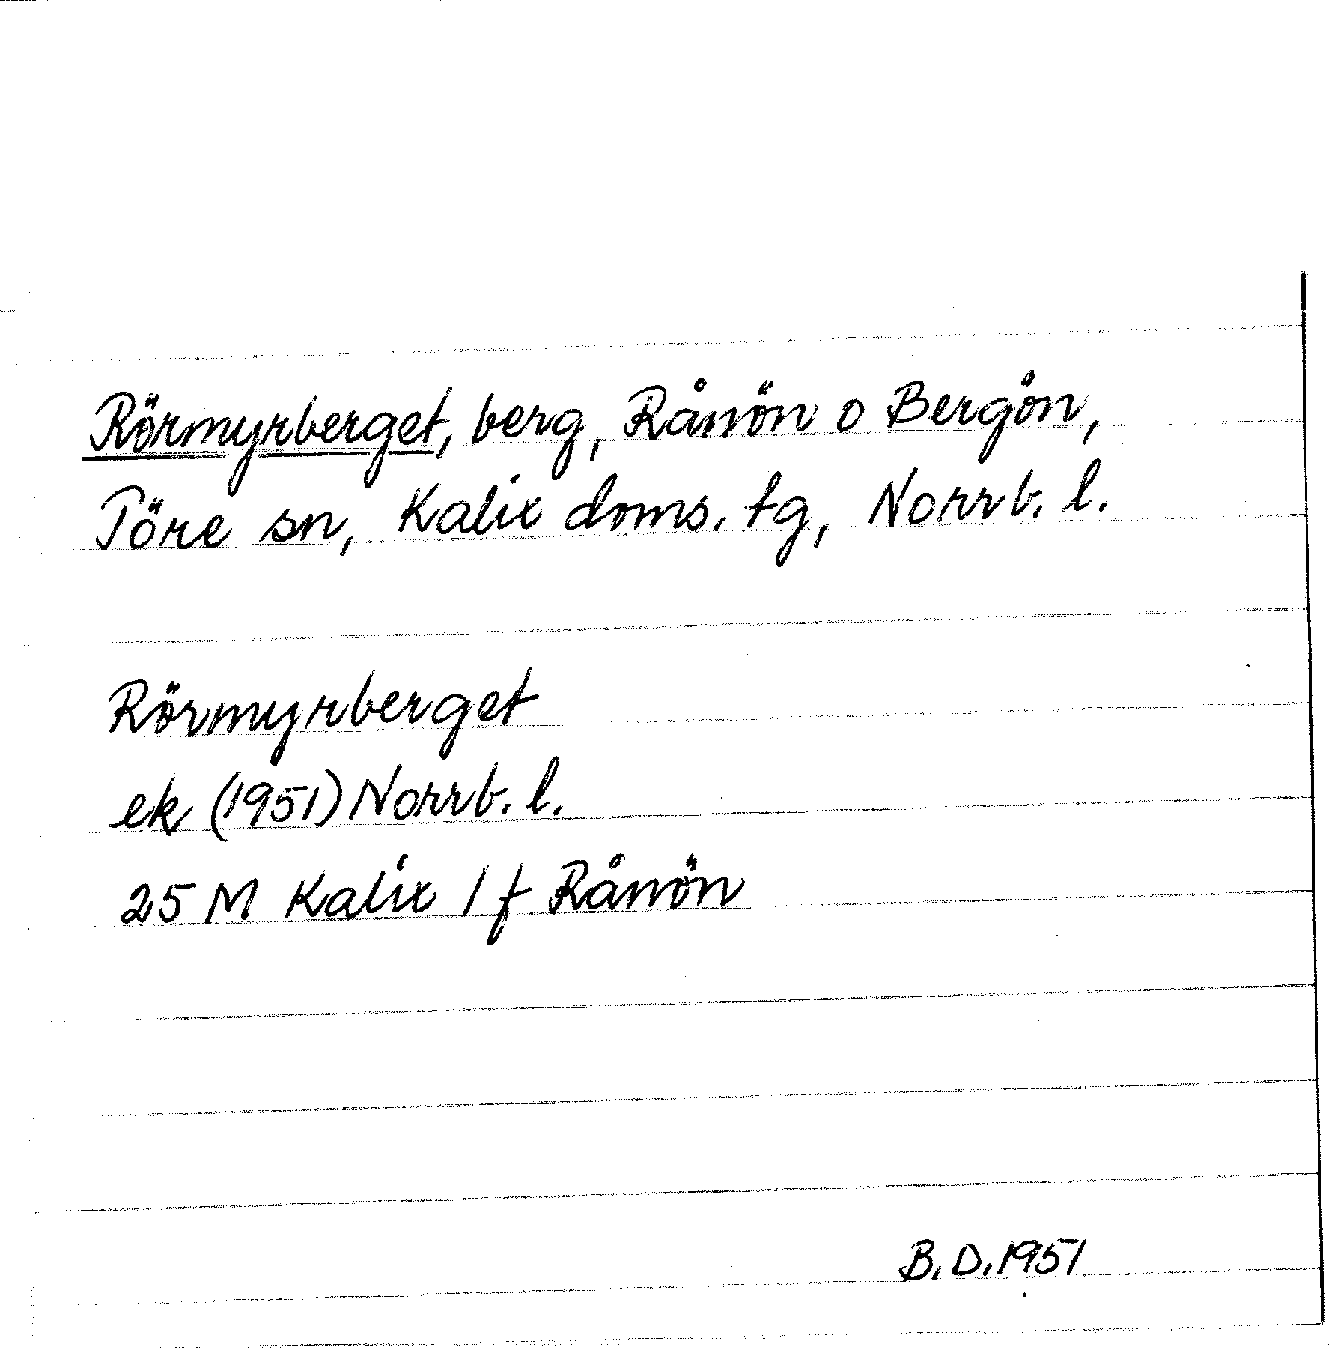 Rörmyrberget, berg, Rånön o Bergön,
Töre sn, Kalix doms. tg, Norrb. l.
Rörmyrberget
ek (1951) Norrb. l.
25 M Kalix 1 f Rånön
B. D. 1951